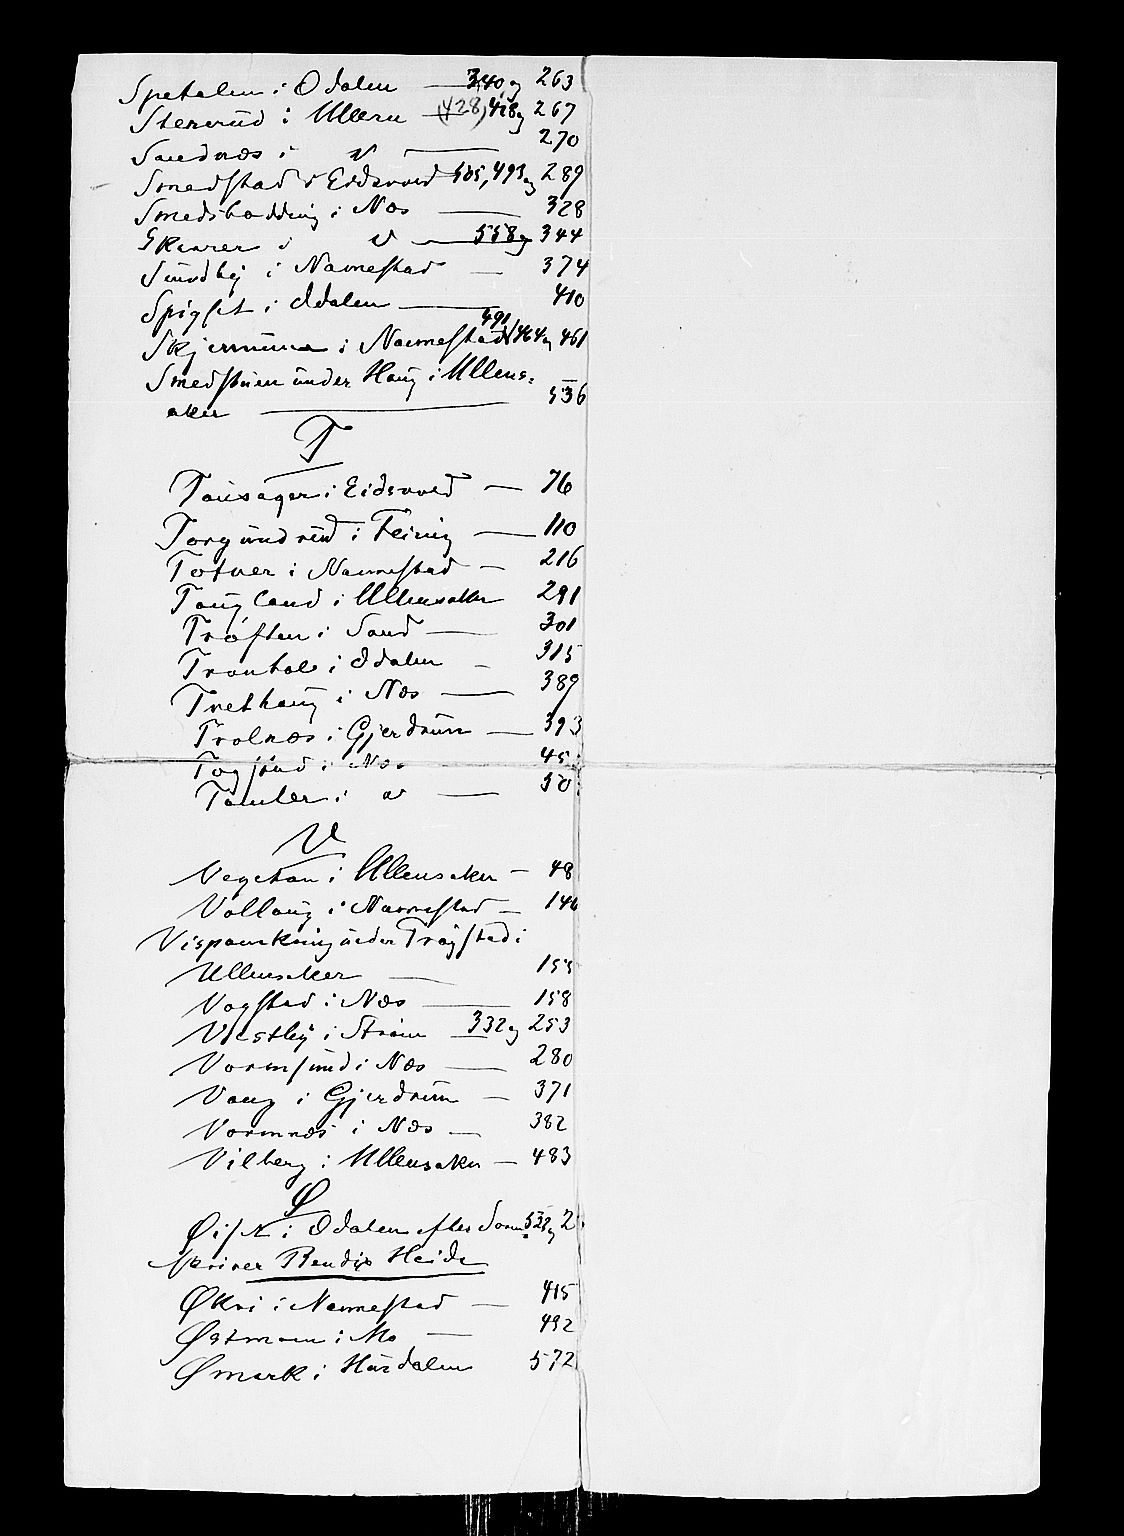 Spetalen i Odalen — 340, og 263
Stenerud i Ullern (428), 428 og 267
Sandnæs i " — 270
Smedstad i Eidsvold 505, 493 og 289
Smedsbødding i Næs — 328
Skarer i " — 558 og 344
Sundby i Nannestad — 374
Spigset i Odalen — 410
Skjerminna i Nannestad 491, 464 og 461
Smedstuen under Haug i Ullens-
aker — 536
T
Tausager i Eidsvold — 76
Torgundrud i Feiring — 110
Totner i Nannestad — 216
Taugland i Ullensaker 291
Trøften i Sand — 301
Trontal i Odalen — 315
Trethaug i Næs — 389
Trolnæs i Gjerdrum — 393
i Næs — 45
Tomter i " — 50
V
Vegstan i Ullensaker — 48
Vollaug i Nannestad — 146
under Trøgstad i
Ullensaker — 155
Vogstad i Næs — 158
Vestby i Strøm 332 og 253
Vormsund i Næs — 280
Vang i Gjerdrum — 371
Vormnæs i Næs — 382
Vilberg i Ullensaker — 483
Ø
i Odalen efter Soren- 528 og 2
skriver Bendix Heide
Økri i Nannestad — 415
Østmoen i Mo — 492
Ømark i Hurdalen 572